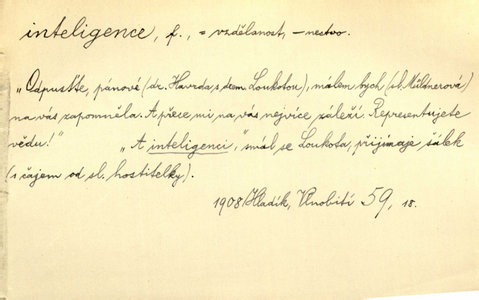 inteligence, f., = vzdělanost, -nectvo.
„Odpusťte, pánové (dr. Havrda s drem Loukotou), málem bych (sl. Müldnerová)
na vás zapomněla. A přece mi na vás nejvíce záleží. Representujete
vědu!" „A inteligenci," smál se Loukota, přijímaje šálek
(s čajem od sl. hostitelky).
1908/Hladík, Vlnobití 59, 18.